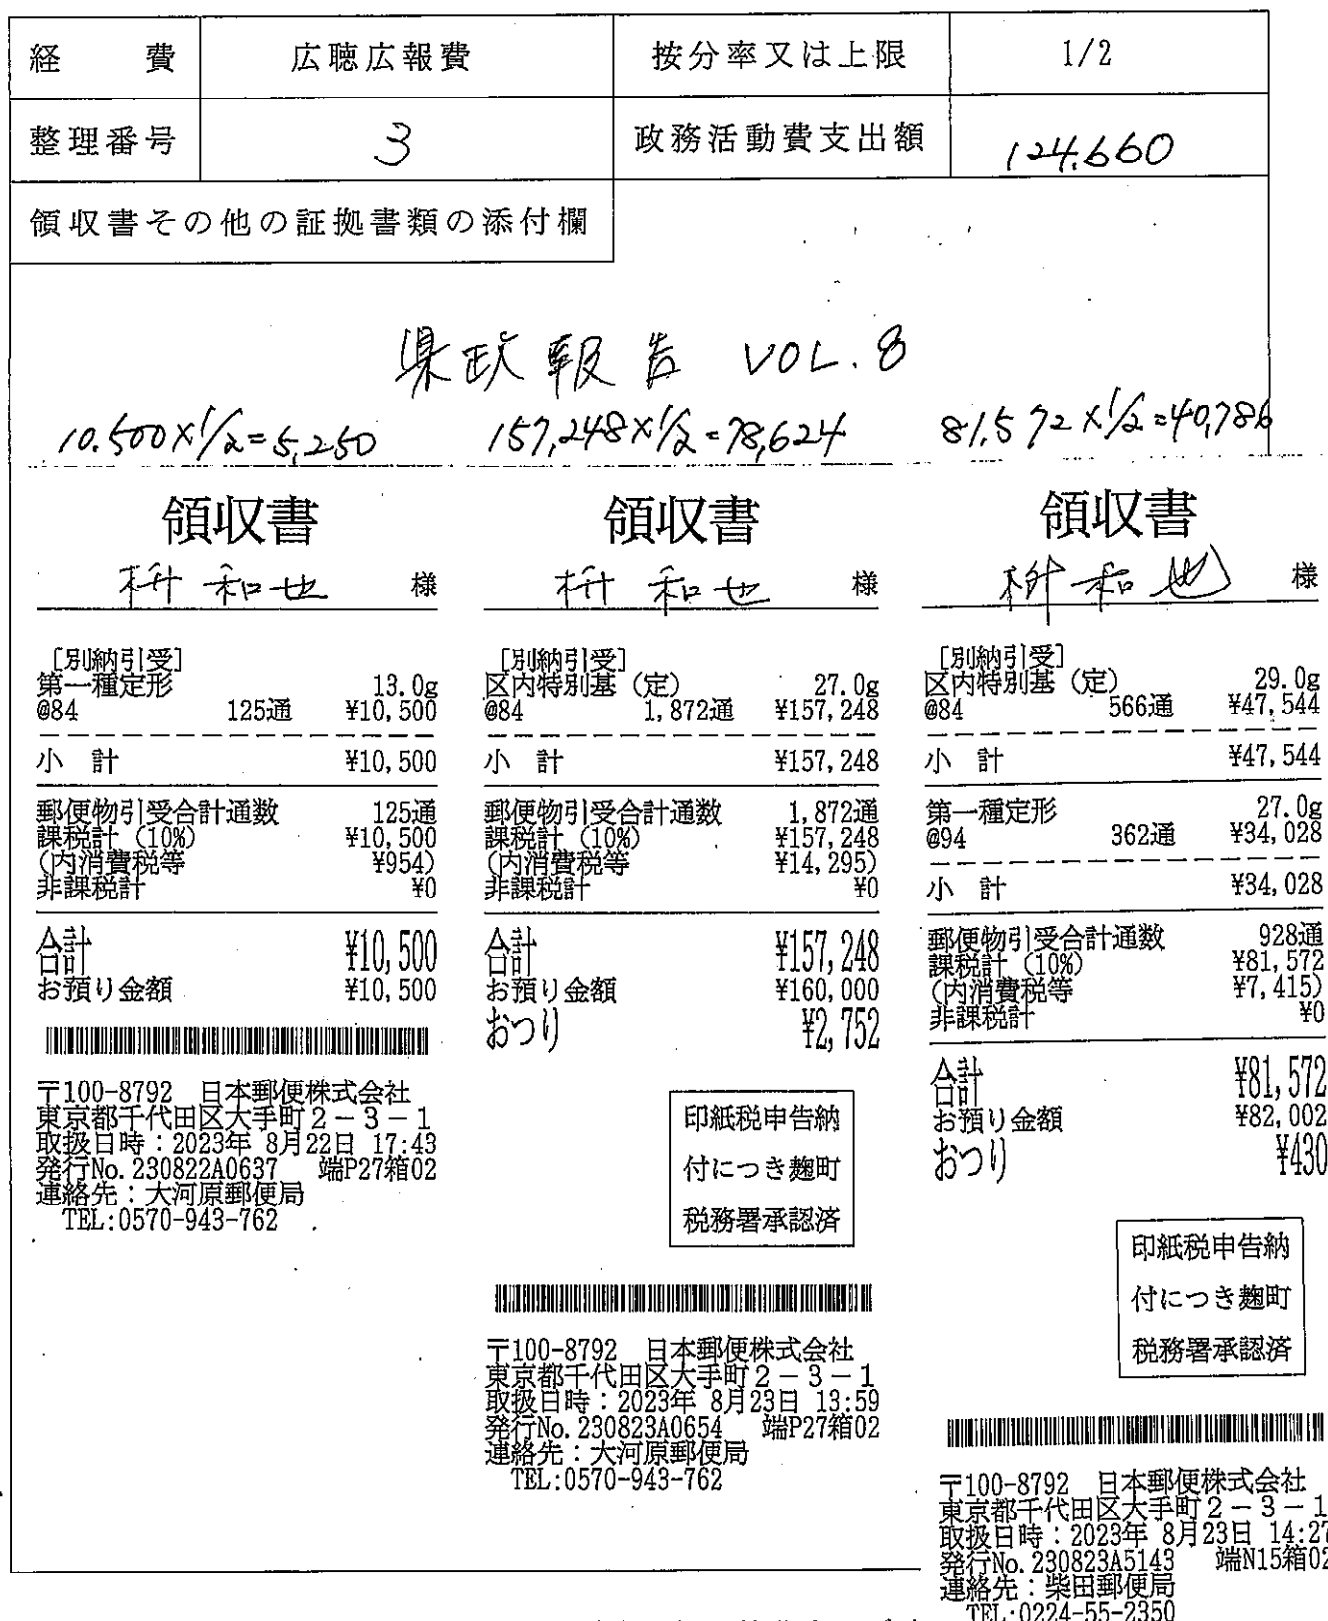 経 費 広聴広報費 按分率又は上限 1/2
整理番号 3 政務活動費支出額 124,660
領収書その他の証拠書類の添付欄
県政報告 VOL.8
10.500×1/2=5,250 157,248×1/2=78,624 81.572×1/2=40,786
領収書
枡 和也 様
[別納引受]
第一種定形 13.0g
@84 125通 ¥10,500
小 計 ¥10,500
郵便物引受合計通数 125通
課税計(10%) ¥10,500
(内消費税等 ¥954)
非課税計 ¥0
合計 ¥10,500
お預り金額 ¥10,500
〒100-8792 日本郵便株式会社
東京都千代田区大手町2-3-1
取扱日時:2023年 8月22日 17:43
発行No.230822A0637 端P27箱02
連絡先:大河原郵便局
TEL:0570-943-762
領収書
枡 和也 様
[別納引受]
区内特別基(定) 27.0g
@84 1,872通 ¥157,248
小 計 ¥157,248
郵便物引受合計通数 1,872通
課税計(10%) ¥157,248
(内消費税等 ¥14,295)
非課税計 ¥0
合計 ¥157,248
お預り金額 ¥160,000
おつり ¥2,752
印紙税申告納
付につき麹町
税務署承認済
〒100-8792 日本郵便株式会社
東京都千代田区大手町2-3-1
取扱日時:2023年 8月23日 13:59
発行No.230823A0654 端P27箱02
連絡先:大河原郵便局
TEL:0570-943-762
領収書
枡 和也 様
[別納引受]
区内特別基(定) 29.0g
@84 566通 ¥47,544
小 計 ¥47,544
第一種定形 27.0g
@94 362通 ¥34,028
小 計 ¥34,028
郵便物引受合計通数 928通
課税計(10%) ¥81,572
(内消費税等 ¥7,415)
非課税計 ¥0
合計 ¥81,572
お預り金額 ¥82,002
おつり ¥430
印紙税申告納
付につき麹町
税務署承認済
〒100-8792 日本郵便株式会社
東京都千代田区大手町2-3-1
取扱日時:2023年 8月23日 14:27
発行No.230823A5143 端N15箱02
連絡先:柴田郵便局
TEL:0224-55-2350